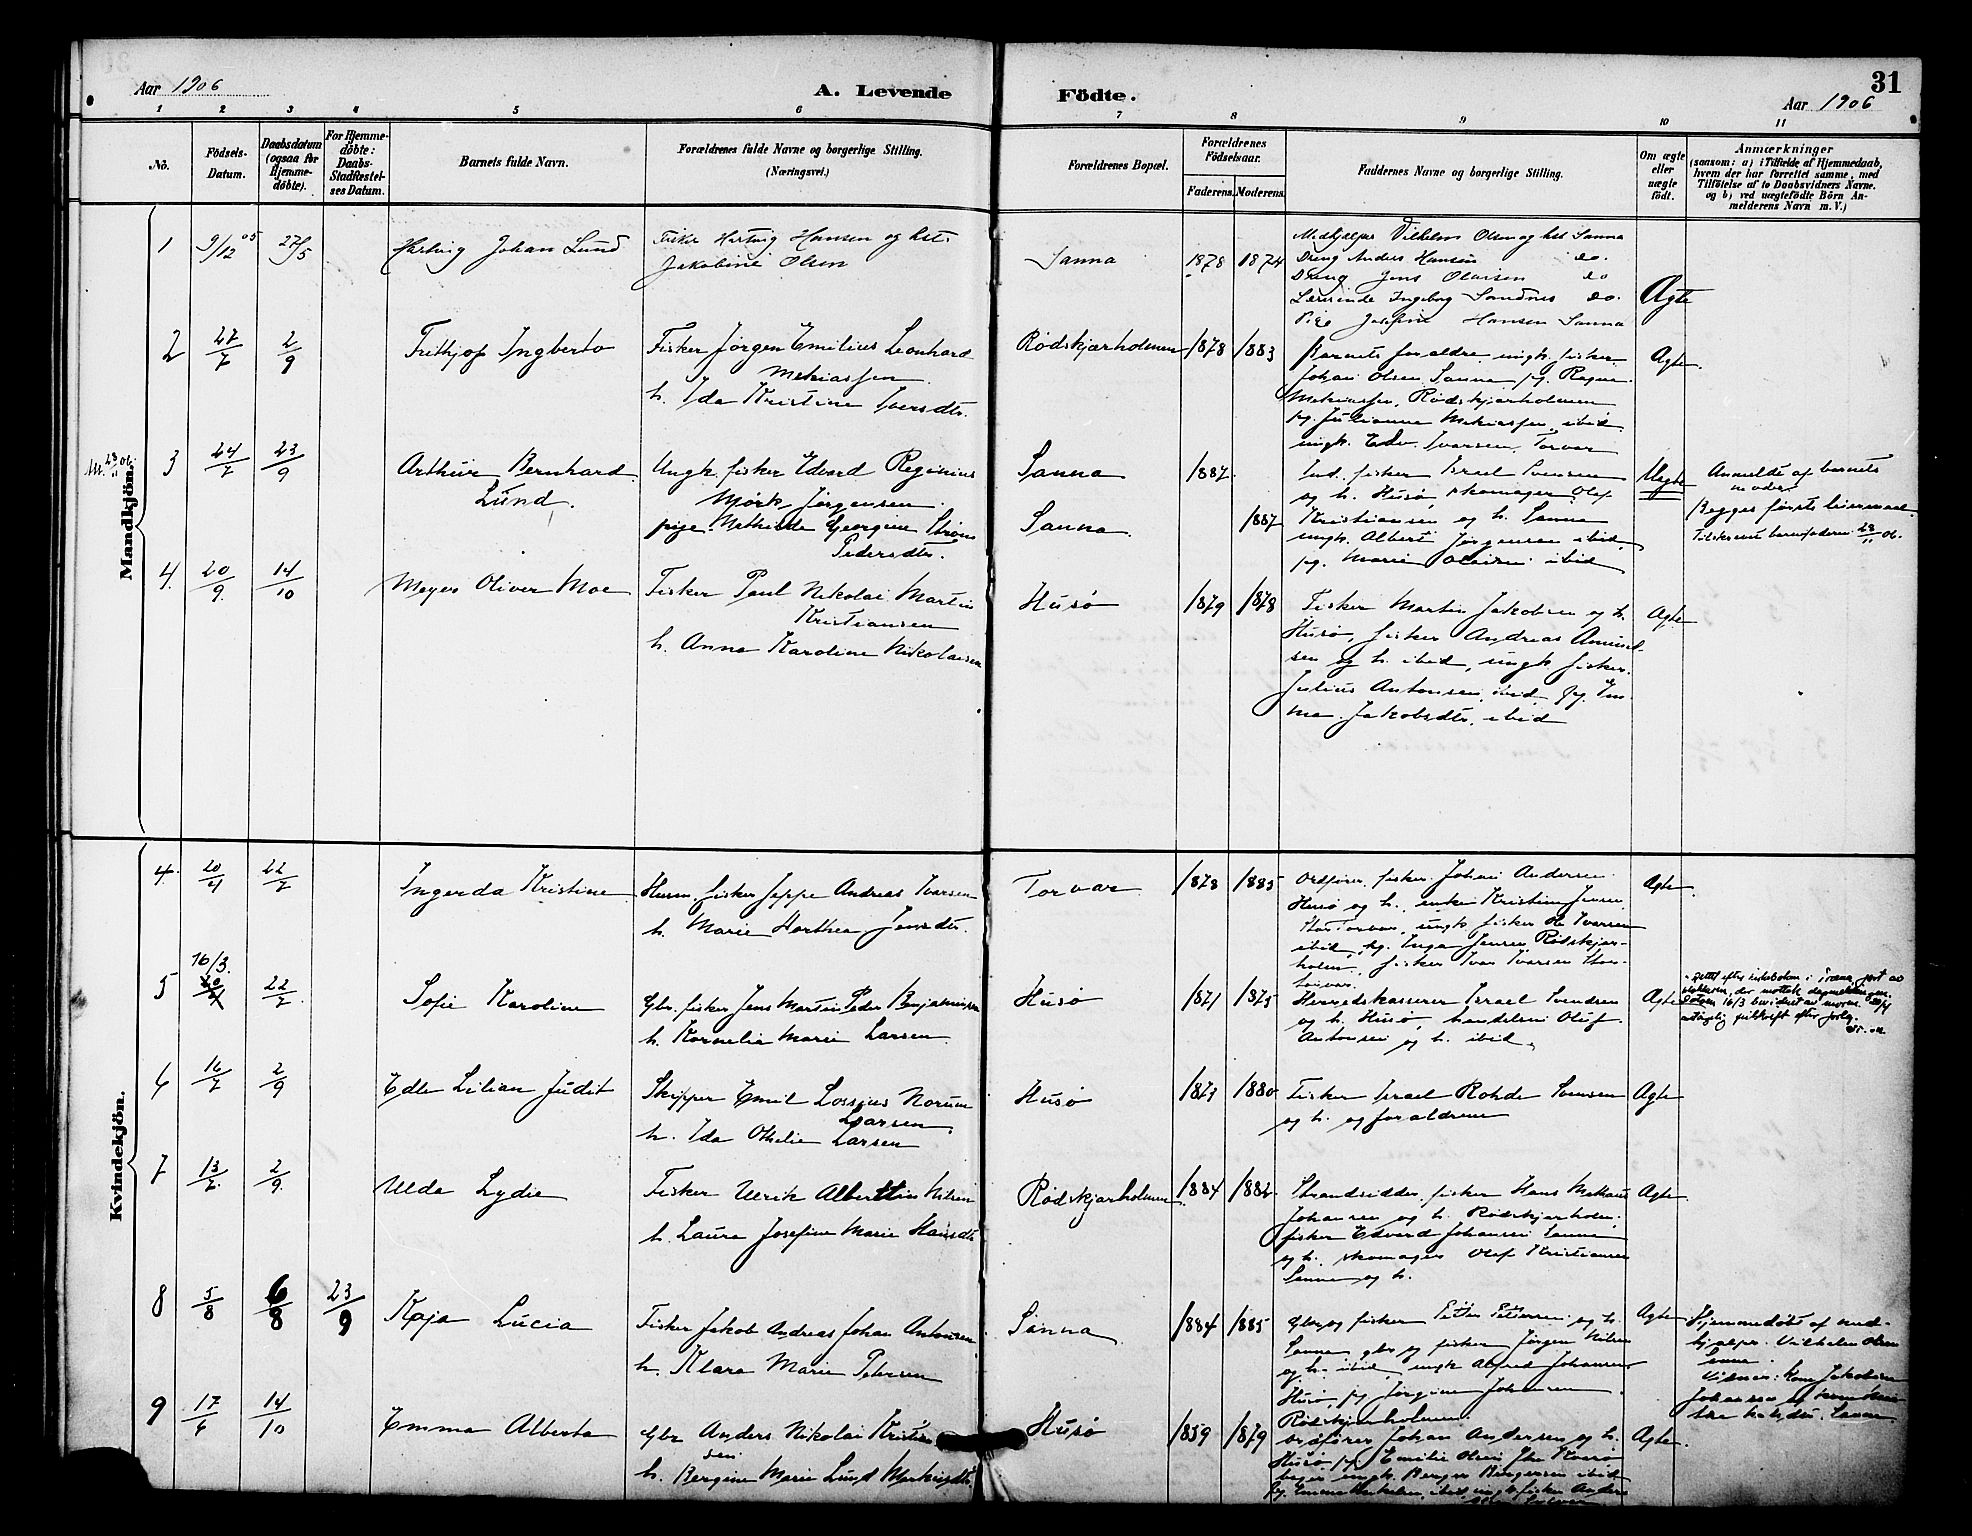 Aar 1906
A. Levende Födte.
31
Aar 1906
1 2 3 4 5 6 7 8 9 10 11
No.
Födsels-Datum.
Daabsdatum (ogsaa for Hjemme-döbte).
For Hjemme-döbte: Daabs-Stadfæstel-ses Datum.
Barnets fulde Navn.
Forældrenes fulde Navne og borgerlige Stilling.
(Næringsvei.)
Forældrenes Bopæl.
Forældrenes Födselsaar.
Faderens. Moderens.
Faddernes Navne og borgerlige Stilling.
Om ægte eller uægte födt.
Anmærkninger
(saasom: a) i Tilfælde af Hjemmedaab,
hvem der har forrettet samme, med
Tilföielse af to Daabsvidners Navne.
og b) ved uægtefödte Börn An-
melderens Navn m. V.)
Mandkjön.
1 9/12 05 27/5 Hartvig Johan Lund
Fisker Hartvig Hansen og hst.
Jakobine Olsen
Sanna 1878 1874
Medhjælper Vilhelm Olsen og hst Sanna
Dreng Anders Hansen do.
Dreng Jens Olaisen do
Lærerinde Ingeborg Sandnes do.
Pige Josefine Hansen Sanna
Ægte
2 27/7 2/9 Frithjof Ingberto
Fisker Jørgen Emilius Leonhard
Mekiassen
h. Ida Kristine Iversdtr.
Rødskjærholmen 1878 1883
Barnets forældre, ungk. fisker
Johan Olsen Sanna, pg. Ragna
Mekiassen, Rødskjærholmen
pg. Julianna Mekiassen, ibid
ungk. Edv. Ivarsen, Torvær
Ægte
3 24/7 23/9 Arthur Bernhard
Lund.
Ungk. fisker Edvard Reginius
Mørk Jørgensen
pige Mathilde Georgine Strøm
Pedersdtr.
Sanna 1887
Sanna. 1887
Ind. fisker Israel Svensen
og h. Husø, skomager Olef
Kristiansen og h. Sanna
ungk. Albert Jørgensen ibid,
pg. Marie Olaisen ibid
Uægte
Anmeldt af barnets
moder.
Begges første leiermaal.
4. 20/9 14/10 Meyer Oliver Moe
Fisker Paul Nikolai Martin
Kristiansen
h. Anna Karoline Nikolaisen
Husø 1879 1878
Fisker Martin Jakobsen og h.
Husø, fisker Andreas Amund-
sen og h. ibid, ungk. fisker
Julius Antonsen, ibid, pg. Em-
ma Jakobsdtr, ibid
Ægte
Kvindekjön.
4. 20/4 22/7 Ingerda Kristine
Husm. fisker Jeppe Andreas Ivarsen
h. Marie Dorthea Jensdtr.
Torvær 1878 1885
Ordfører, fisker Johan Andersen
Husø og h., enke Kristine Jensen
ibid, pg. Inga Jensen Rødskjær-
holm, fisker Ivar Ivarsen
Ægte
5 16/3. 20/4 22/7 Sofie Karoline
Gbr. fisker Jens Martin Peder Benjaminsen
h. Kornelia Marie Larsen
Husø 1871 1875
Herredskasserer Israel Svendsen
og h. Husø, handelsm Oluf
Antonsen og h. ibid.
Ægte
6 16/7 2/9 Edle Lilian Judit
Skipper Emil Lossius Norum
Larsen
h. Ida Othelie Larsen
Husø 1873 1880
Fisker Israel Rohde Svensen
og h. og forældrene
Ægte
7 13/7. 2/9. Ulda Lydie
Fisker Ulrik Alberttin Nilsen
h. Laura Josefine Marie Hansdtr
Rødskjærholmen 1884 1882
Strandsidder, fisker Hans Mathias
Johansen og h. Rødskjærholm,
fisker Edvard Johansen Sanna
og h. skomager Olef Kristiansen
Sanna og h.
Ægte
8 5/8 6/8 23/9 Kaja Lucia
Fisker Jakob Andreas Johan Antonsen
h. Klara Marie Petersen
Sanna 1884 1885
Gbr. og fisker Peter Petersen og h.
Sanna gbr. og fisker Jørgen Nilsen
og h. ibid, ungk. Alfred Johansen
Husø, pg. Jørgine Johansen
Rødskjærholmen.
Ægte
Hjemmedøbt af med-
hjælper Vilhelm Olsen
Sanna.
9 17/6 14/10 Emma Alberta
Gbr Anders Nikolai Kristian
sen
h. Bergine Marie Lund Markusdtr.
Husø 1859 1879
ordfører Johan Andersen og h.
Ægte.